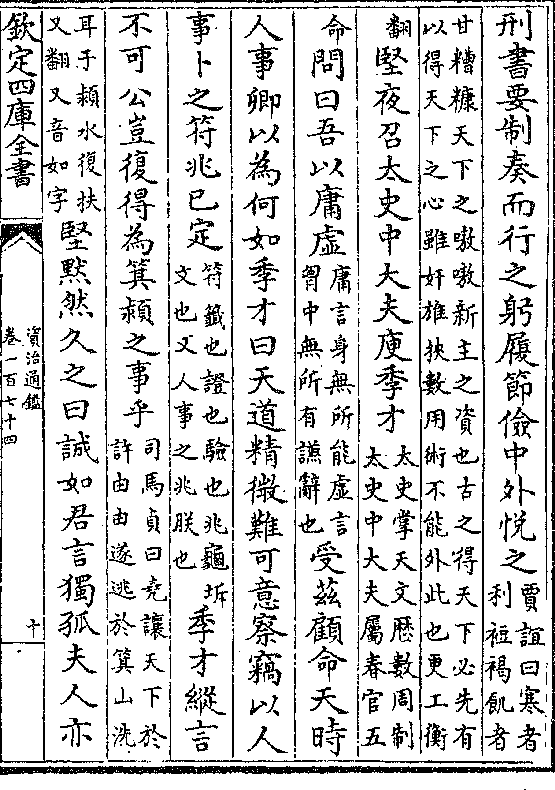 刑書要制奏而行之躬履節儉中外悦之賈誼曰寒者利裋褐飢者
甘糟糠天下之嗷嗷新主之資也古之得天下必先有以得天下之心雖奸雄挾數用術不能外此也更工衡
翻堅夜召太史中大夫庾季才太史掌天文厯數周制太史中大夫屬春官五
命問曰吾以庸虛庸言身無所能虛言胷中無所有謙辭也受兹顧命天時
人事卿以為何如季才曰天道精微難可意察竊以人
事卜之符兆已定符籤也證也驗也兆龜坼文也又人事之兆朕也季才縱言
不可公豈復得為箕潁之事乎司馬貞曰堯讓天下於許由由遂逃於箕山洗
耳于潁水復扶又翻又音如字堅默然久之曰誠如君言獨孤夫人亦
欽定四庫全書
資治通鑑
卷一百七十四
十